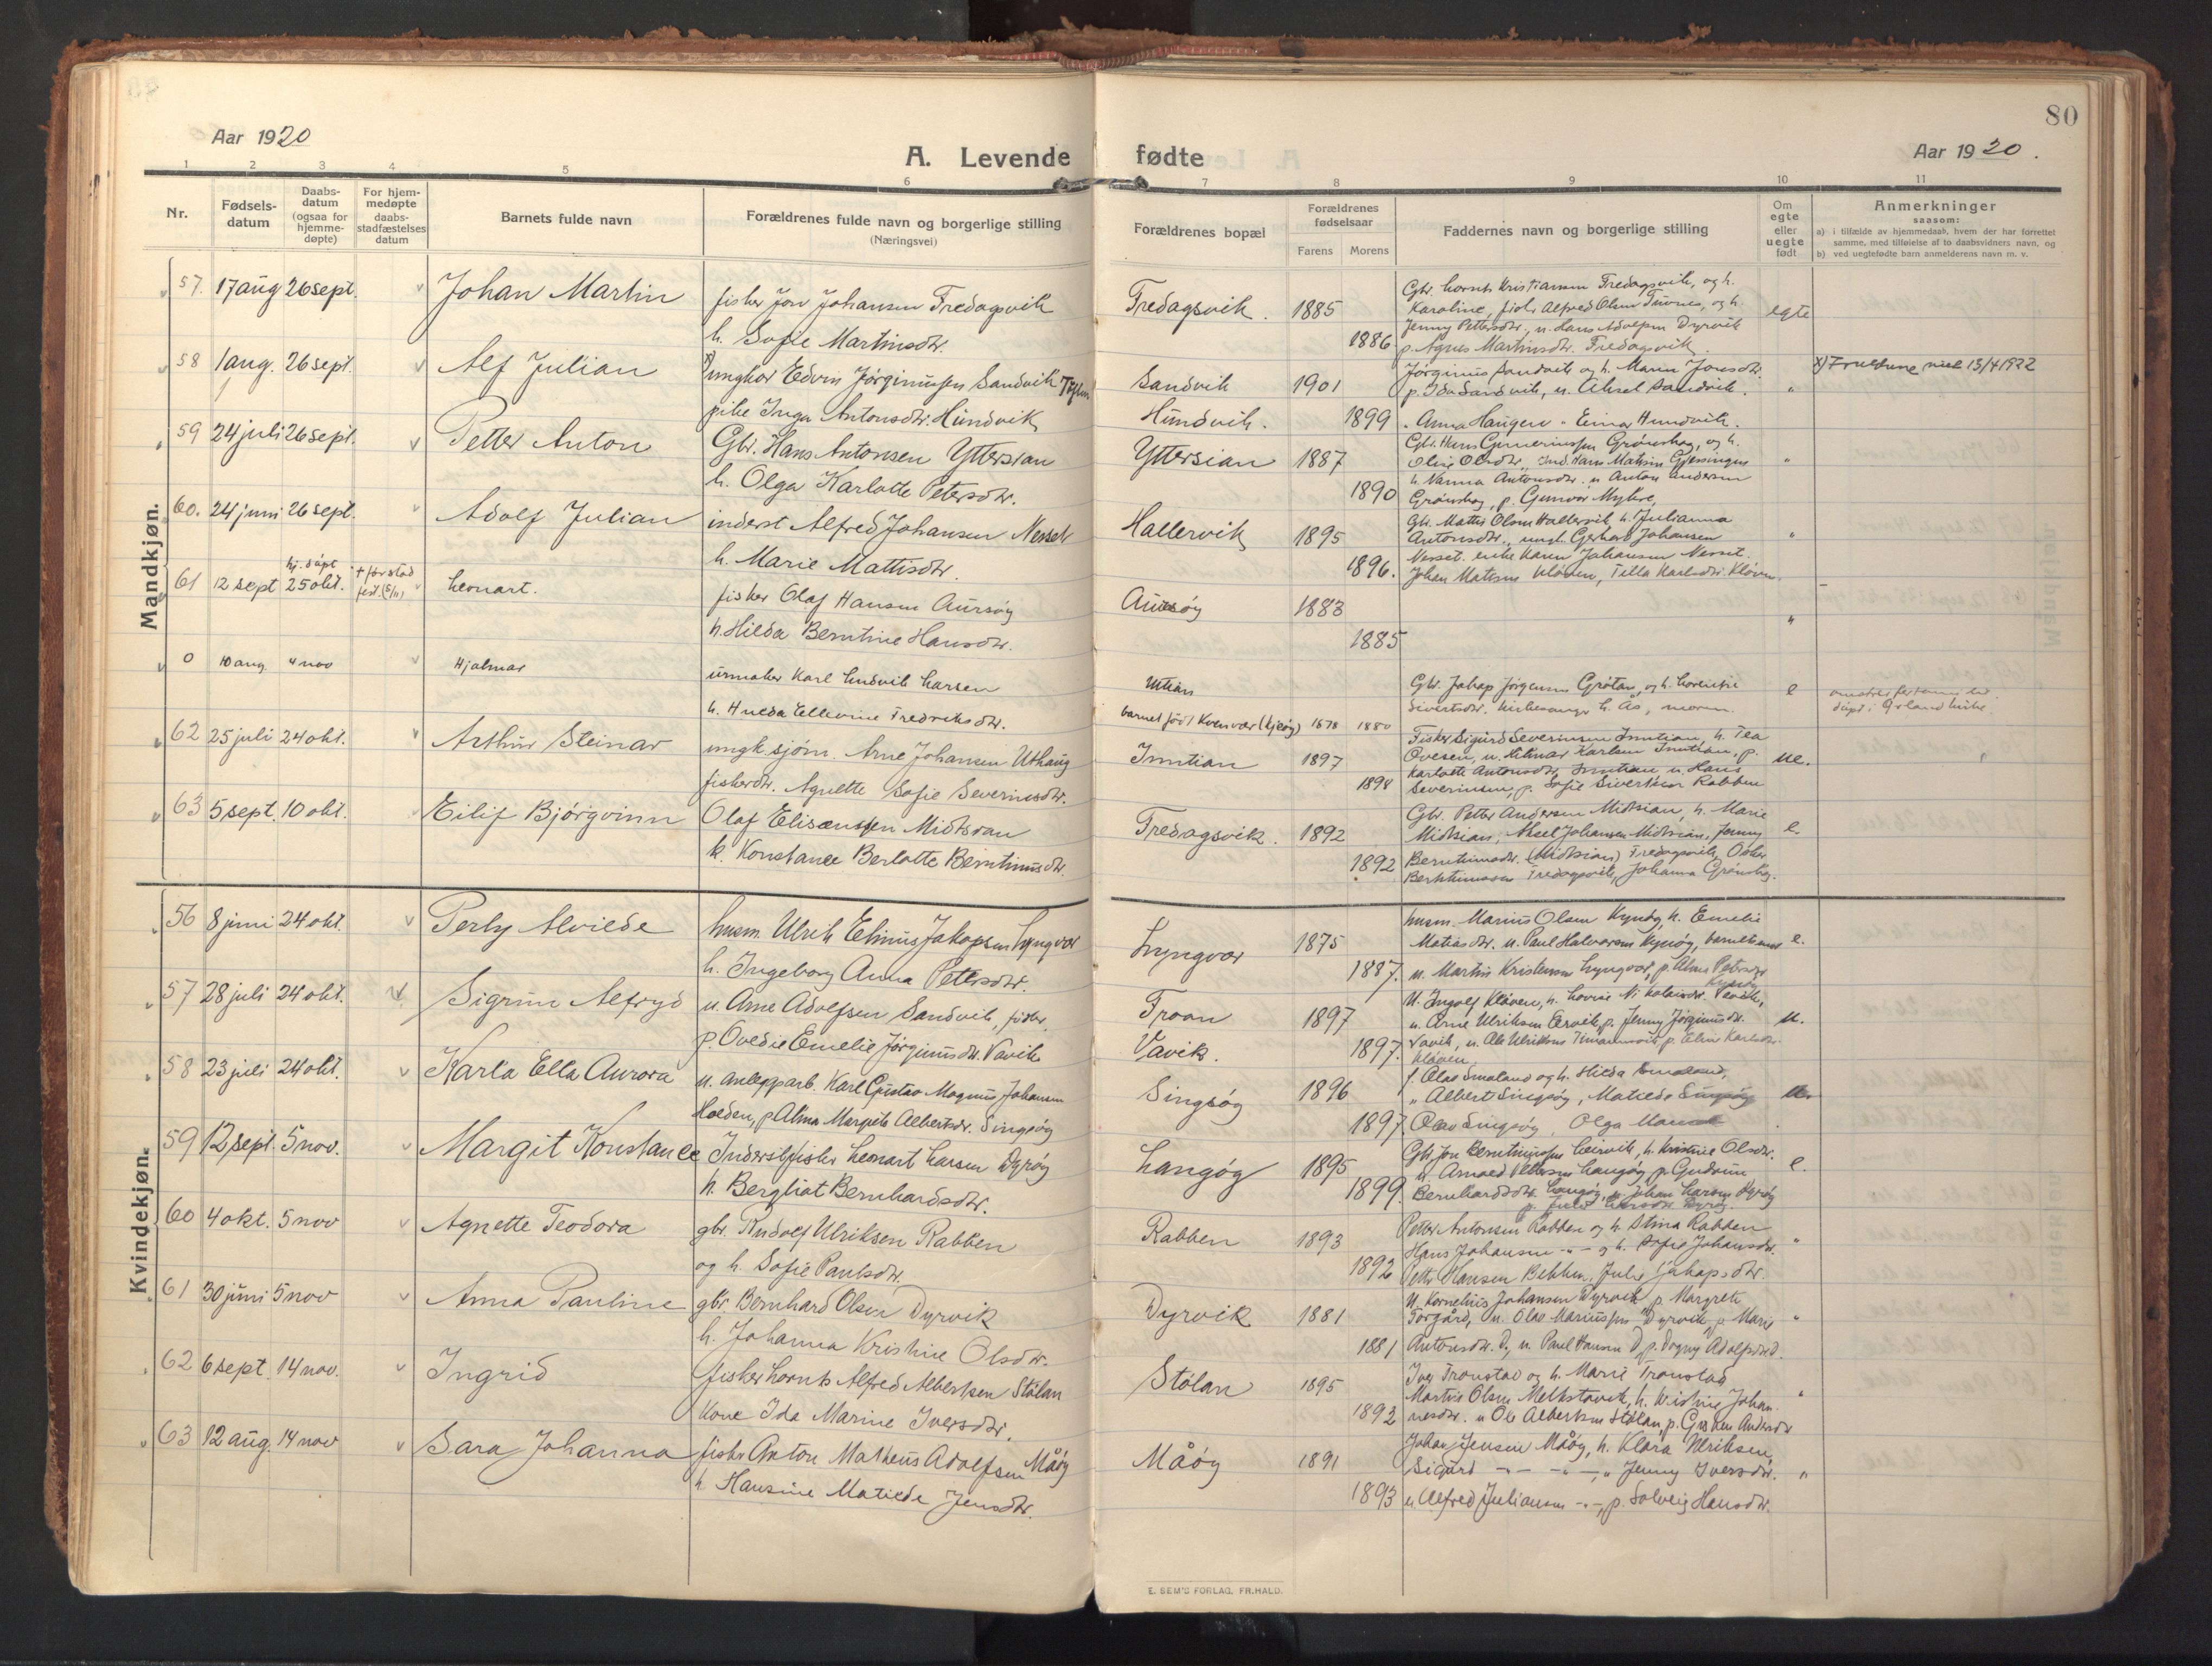 80
Aar 1920
A. Levende fødte
Aar 1920.
1 2 3 4 5 6 7 8 9 10 11
Nr.
Fødsels-
datum
Daabs-
datum
(ogsaa for
hjemme-
døpte)
For hjem-
medøpte
daabs-
stadfæstelses
datum
Barnets fulde navn
Forældrenes fulde navn og borgerlige stilling
(Næringsvei)
Forældrenes bopæl
Forældrenes
fødselsaar
Farens Morens
Faddernes navn og borgerlige stilling
Om
egte
eller
uegte
født
Anmerkninger
saasom:
a) i tilfælde av hjemmedaab, hvem der har forrettet
samme, med tilføielse af to daabsvidners navn, og
b) ved uegtefødte barn anmelderens navn m. v.
Mandkjøn.
57. 17 aug 26 sept. Johan Martin
fisker Jon Johansen Fredagsvik
h. Sofie Martinsdtr.
Fredagsvik. 1885
1886
Gbr. Kristiansen Fredagsvik, og h.
Karoline, Alfred Olsen og h.
Jenny Pettersdtr., u. Hans Adolfsen Dyrvik
p. Agnes Martinsdtr. Fredagsvik.
egte
58 1 aug. 26 sept. Alf Julian
x) ungkar Edvin Jørginussen Sandvik
pike Inga Antonsdtr. Hundvik
Sandvik 1901
Hundvik. 1899
Jørginus Sandvik og h. Maren Jonsdtr.
p. Ida Sandvik, u. Aksel Sandvik.
" Anna Haugen " Einar Hundvik.
"
x) 13/4 1922
59 24 juli 26 sept. Petter Anton
Gbr. Hans Antonsen Yttersian
h. Olga Karlotte Petersdtr.
Yttersian 1887
1890
Gbr. Hans Grønskag, og h.
Oline Olsdtr., Hans Matisen Gjessingen
h. Nanna Antonsdtr. u Anton Andersen
Grønskag, p. Gunvor Myhre,
"
60. 24 juni 26 sept. Adolf Julian
inderst Alfred Johansen Nesset
h. Marie Mattisdtr.
Hallervik 1895
1896.
Gbr. Mattis Olsen Hallervik h. Julianna
Antonsdtr., ungk. Gerhard Johansen
Nesset. enke Karen Johansen Nesset.
Johan Matisen Kløven, Tilla Karlsdtr. Kløven.
"
61 12 sept hj. døpt 25 okt. Leonart.
fisker Olaf Hansen Aursøy
h. Hilda Berntine Hansdtr.
Aursøy 1883
1885
"
0 10 aug. 4 nov Hjalmar
urmaker Karl Ludvik Larsen
h. Hulda Ellevine Fredriksdtr.
Uttian
barnet født Kvenvær (kjøøy) 1878 1880
Gbr. Jakop Jørgensen Grøtan, og h.
Sivertsdtr. kirkesanger h. Ås, moren.
e
døpt i Ørland kirke.
62 25 juli 24 okt. Arthur Steinar
ungk sjøm. Arne Johansen Uthaug
fiskerdtr. Agnette Sofie Severinsdtr.
Inntian 1897
1898
Fisker Sigurd Severinsen Inntian, h. Tea
Ovesen, u. Hilmar Karlsen Inntian, p.
Karlotte Antonsdtr. Inntian u. Hans
Severinsen, p. Sofie Sivertsen Rabben
ue.
63 5 sept. 10 okt. Eilif Bjørgvinn
Olaf Elisænssen Midtsian
k. Konstance Berlotte Berntinusdtr.
Fredagsvik. 1892
1892
Gbr. Petter Andersen Midtsian, h. Marie
Midtsian, Aksel Johansen Midtsian, Jenny
Berntinusdtr. (Midtsian) Fredagsvik,
Berntinussen Fredagsvik, Johanna Grønskag.
e.
Kvindekjøn.
56 8 juni 24 okt. Perly Alvilde
husm. Ulrik Elinus Jakopsen Lyngvær
h. Ingeborg Anna Petersdtr.
Lyngvær 1875
1887.
husm. Marius Olsen h. Emelie
Matiasdtr. u. Paul Halvorsen
u. Martin Kristensen Lyngvær, p. Alma Petersdtr
e.
57 28 juli 24 okt. Sigrun Alfryd
u. Arne Adolfsen Sandvik, fisker.
p. Ovedie Emelie Jørginusdtr. Vavik
Froan 1897
Vavik. 1897.
U. Ingolf Kløven, h. Lovise Nikolaisdtr.
u. Arne Ulriksen p. Jenny Jørginusdtr.
Vavik, u. Ole Ulriksen p. Elin Karlsdtr.
Kløven.
u.
58 23 juli 24 okt. Karla Ella Aurora
u. anleggsarb. Karl Gustav Magnus Johansen
Holden, p Alma Margrete Albertsdtr. Singsøy
Singsøy 1896
1897
f. Olaf Småland og h. Hilda Småland,
" Albert Singsøy, Matilde Singsøy
Olav Singsøy, Olga
59 12 sept. 5 nov. Margit Konstance
Inderst fisker Leonart Larsen Dyrøy
h. Bergliot Bernhardsdtr.
Langøy 1895
1899.
Gbr. Jon h. Kristine Olsdtr.
u. Arnold Langøy, p. Gudrun
Bernhardsdtr. Langøy, u. Johan Larsen Dyrøy
e.
60 4 okt. 5 nov Agnette Teodora
gbr. Rudolf Ulriksen Rabben
og h. Sofie Paulsdtr.
Rabben 1893
1892
Petter Antonsen Rabben og h. Stina Rabben
Hans Johansen -"- og h. Sofie Johansdtr.
Petter Hansen Bekken, Julie Jakopsdtr.
"
61 30 juni 5 nov Anna Pauline
gbr Bernhard Olsen Dyrvik
h. Johanna Kristine Olsdtr.
Dyrvik 1881
1881
U. Kornelius Johansen Dyrvik p. Margrete
Torgård, u. Olav Mariussen Dyrvik, p. Marie
Antonsdtr. D., u. Paul Hansen D, p. Dagny Adolfsdtr D.
"
62 6 sept. 14 nov. Ingrid
fisker Lornts Alfred Albertsen Stølan
Kone Ida Marine Iversdtr.
Stølan 1895
1893
Iver Tronstad og h. Marie Tronstad
Martin Olsen Melkstavik, h. Kristine Johan-
nesdtr. u Ole Albertsen Stølan, p. Andersdtr
"
63 12 aug. 14 nov Sara Johanna
fisker Anton Matheus Adolfsen Måøy
h Hansine Matilde Jensdtr.
Måøy 1891
1893
Johan Jensen Måøy, h. Klara Ulriksen,
Sigurd -"- -"-, " Jenny Iversdtr.
u. Alfred Juliansen -"-, p. Solveig Hansdtr.
"
E. SEM'S FORLAG, FR.HALD.